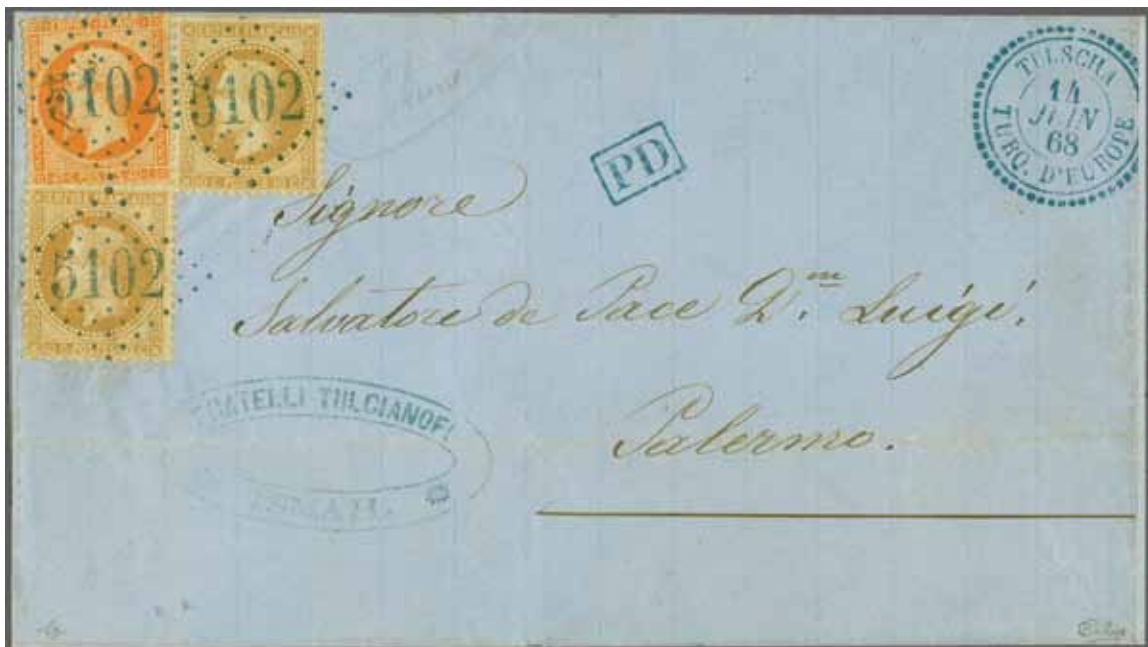 5102 5102
5102
TULSCHA
14
JUIN
68
TURQ. D'EUROPE
PD
Signore
Salvatore de Pace Q.m Luigi.
Palermo.
FRATELLI TULCIANOFF
ISMAIL